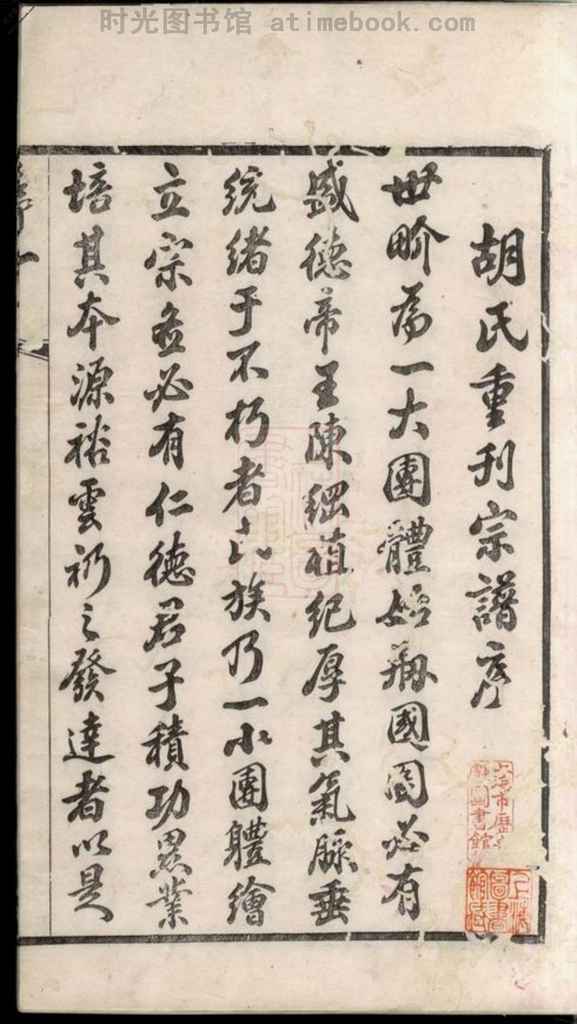 时光图书馆 atimebook.com
胡氏重刊宗譜序
世畍為一大團體始稱國國必有
盛德帝王陳綱植紀厚其氣脉垂
統緒于不朽者六族乃一小團體繪
立宗並必有仁德君子積功累業
培其本源裕雲礽之發達者以是